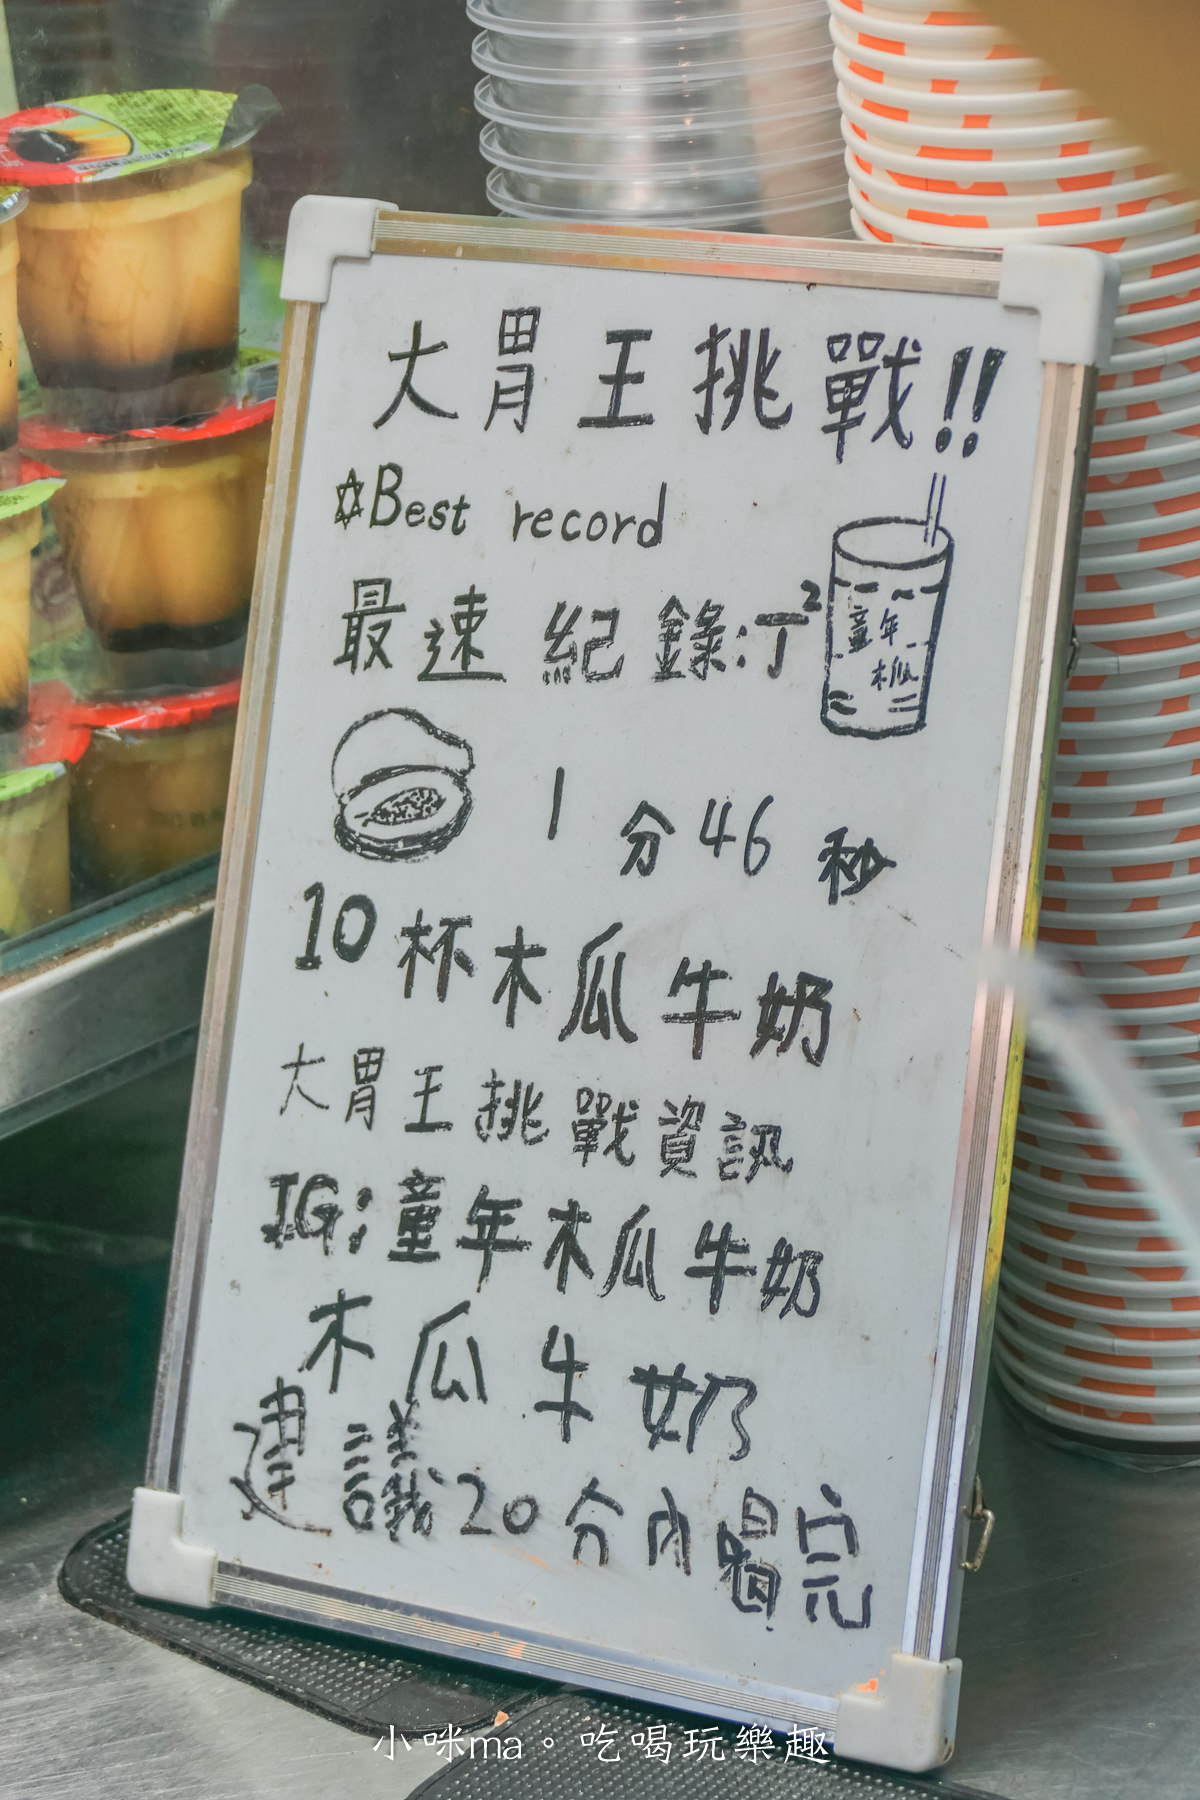 大胃王挑戰!!
✡Best record
最速紀錄:丁²
童年
木瓜
1分46秒
10杯木瓜牛奶
大胃王挑戰資訊
IG:童年木瓜牛奶
木瓜牛奶
建議20分內喝完
小咪ma。吃喝玩樂趣